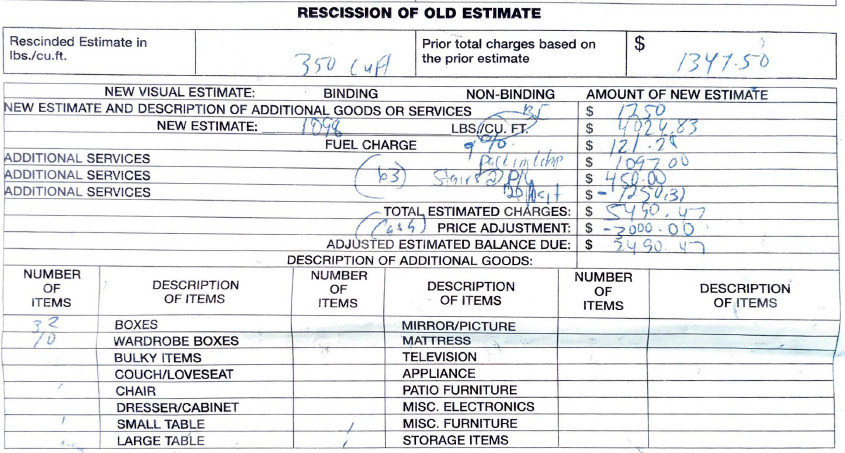 RESCISSION OF OLD ESTIMATE
Rescinded Estimate in lbs./cu.ft. 350 cuft Prior total charges based on the prior estimate $ 1347.50
NEW VISUAL ESTIMATE: BINDING NON-BINDING AMOUNT OF NEW ESTIMATE
NEW ESTIMATE AND DESCRIPTION OF ADDITIONAL GOODS OR SERVICES $ 1250
NEW ESTIMATE: 1098 LBS//CU. FT. $ 4024.83
FUEL CHARGE 9% $ 121.28
ADDITIONAL SERVICES $ 1097.00
ADDITIONAL SERVICES (b3) Stairs $ 450.00
ADDITIONAL SERVICES $
TOTAL ESTIMATED CHARGES: $ 5490.47
PRICE ADJUSTMENT: $ -3000.00
ADJUSTED ESTIMATED BALANCE DUE: $ 2490.47
DESCRIPTION OF ADDITIONAL GOODS:
NUMBER OF ITEMS DESCRIPTION OF ITEMS NUMBER OF ITEMS DESCRIPTION OF ITEMS NUMBER OF ITEMS DESCRIPTION OF ITEMS
32 BOXES MIRROR/PICTURE
10 WARDROBE BOXES MATTRESS
BULKY ITEMS TELEVISION
COUCH/LOVESEAT APPLIANCE
CHAIR PATIO FURNITURE
DRESSER/CABINET MISC. ELECTRONICS
SMALL TABLE MISC. FURNITURE
LARGE TABLE STORAGE ITEMS